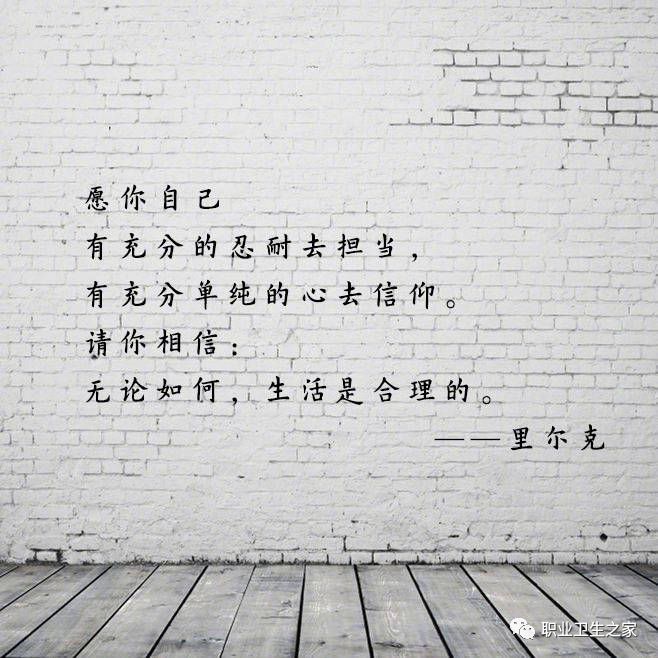 愿你自己
有充分的忍耐去担当，
有充分单纯的心去信仰。
请你相信：
无论如何，生活是合理的。
——里尔克
职业卫生之家